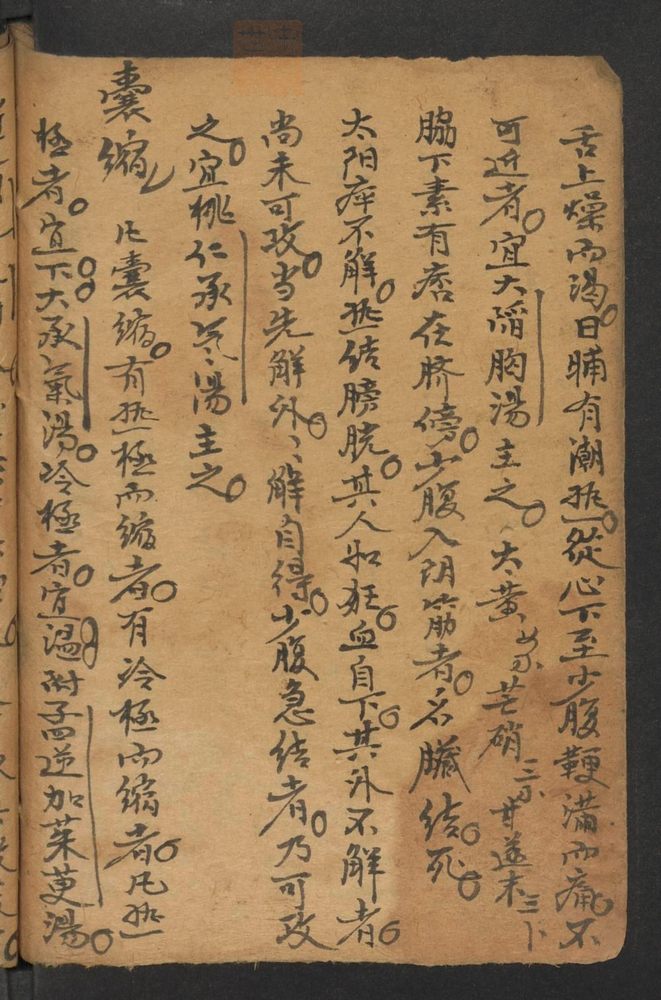 舌上燥而渴日晡有潮热從心下至小腹鞕滿而痛不
可近者宜大陷胸湯主之 大黄 芒硝 甘遂末
脇下素有痞在臍傍少腹入阴筋者名臟结死
太阳病不解热结膀胱其人如狂血自下其外不解者
尚未可攻当先解外〻解自得少腹急结者乃可攻
之宜桃仁承气湯主之
囊縮 凡囊縮有热極而縮者有冷極而縮者凡热
極者宜下大承氣湯冷極者宜温附子四逆加茱萸湯